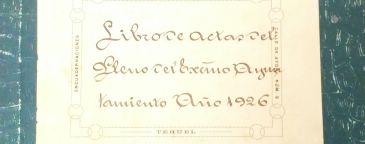 Libro de actas del
Pleno del Excmo Ayun
tamiento Año 1926
ENCUADERNACIONES
TERUEL